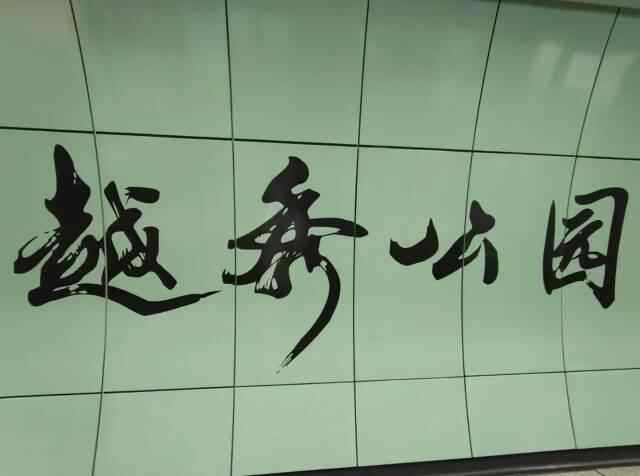 越秀公园